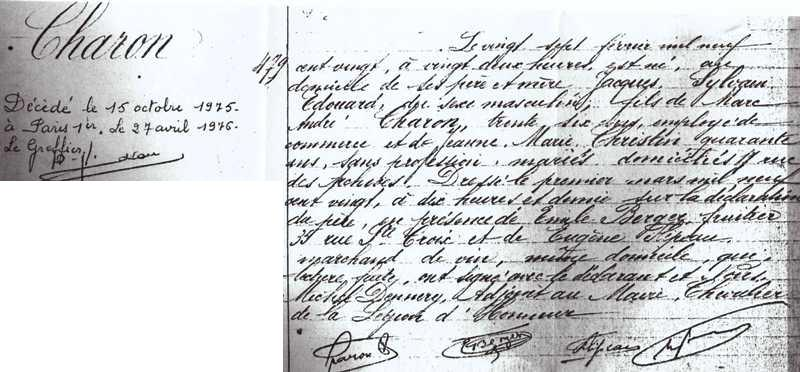 Charon
479
Décédé le 15 octobre 1975.
à Paris 1er. Le 27 avril 1976.
Le Greffier,
Le vingt sept février mil neuf
cent vingt, à vingt deux heures, est né, au
domicile de ses père et mère Jacques, Sylvain
Edouard, du sexe masculin, fils de Marc
André Charon, trente six ans, employé de
commerce et de Jeanne, Marie, Christin quarante
ans, sans profession, mariés, domiciliés 17 rue
des Archives. Dressé le premier mars mil neuf
cent vingt, à dix heures et demie sur la déclaration
du père, en présence de Emile Berger, fruitier
35 rue Ste Croix et de Eugène
marchand de vin, même domicile, qui,
lecture faite, ont signé avec le déclarant et Nous,
Michel Dennery, Adjoint au Maire, Chevalier
de la Légion d'Honneur
Charon Berger